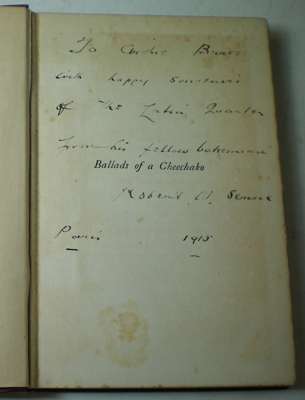 To Archie Bower
with happy souvenirs
of the Latin Quarter
from his fellow bohemian
Ballads of a Cheechako
Robert W. Service
Paris 1915